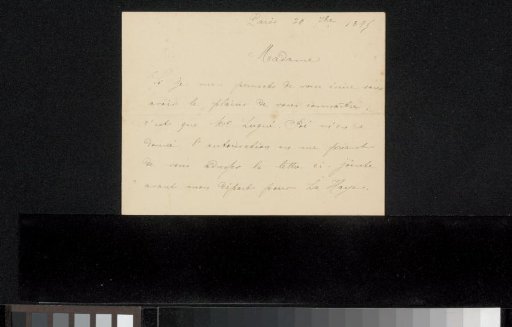 Paris 20 1895
Madame
Si je me permets de vous écrire sans
avoir le plaisir de vous connaître,
c'est que Mr Lugné Poë m'en a
donné l'autorisation en me priant
de vous adresser la lettre ci-jointe
avant mon départ pour La Haye.